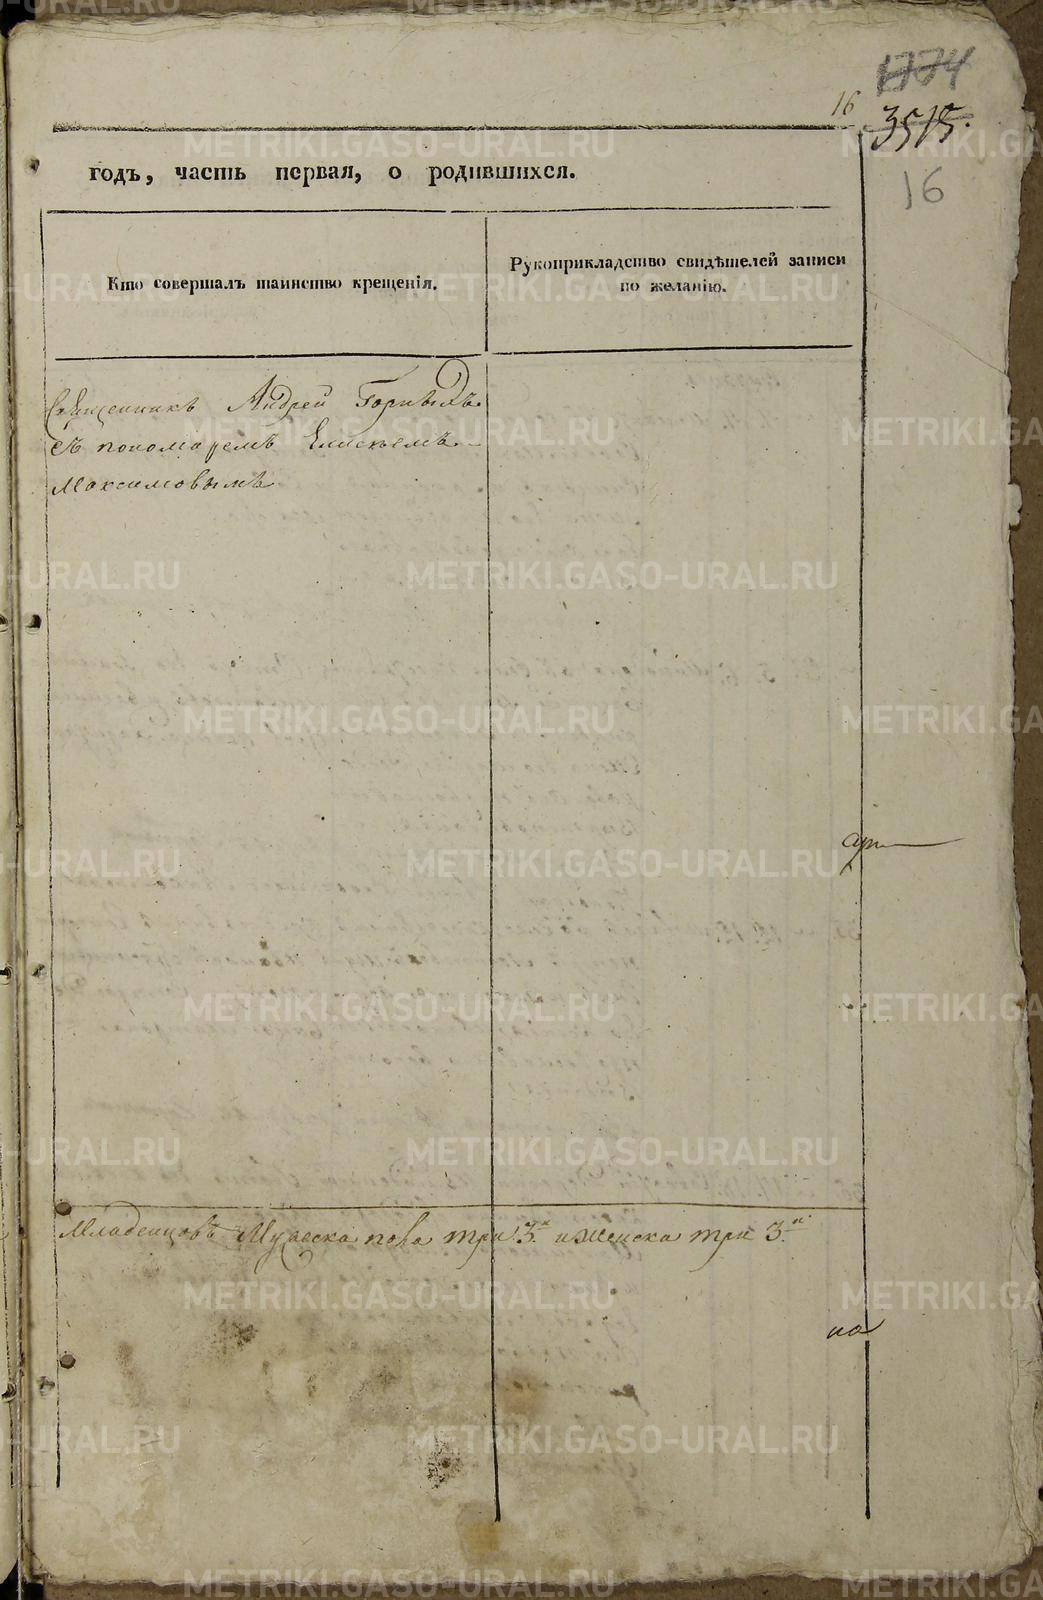 1774
16
3515.
16
годъ, часть первая, о родившихся.
Кто совершалъ таинство крещенія.
Рукоприкладство свидѣтелей записи
по желанію.
Священникъ Андрей
съ пономаремъ Елисѣемъ
Максимовымъ
Младенцовъ Мужеска пола три 3. и Женска три 3.
METRIKI.GASO-URAL.RU